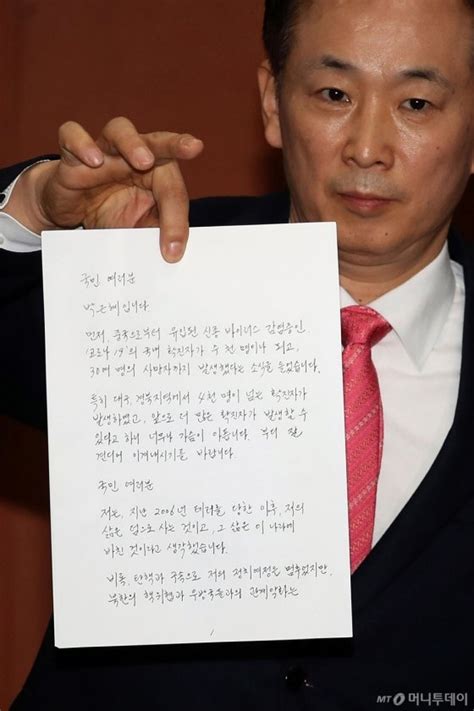 국민 여러분
박근혜입니다
먼저, 중국으로부터 유입된 신종 바이러스 감염증인
'코로나 19'의 국내 확진자가 수 천명이나 되고,
30여 명의 사망자까지 발생했다는 소식을 들었습니다.
특히 대구, 경북지역에서 4천 명이 넘는 확진자가
발생하였고, 앞으로 더 많은 확진자가 발생할 수
있다고 하니 너무나 가슴이 아픕니다. 부디 잘
견디어 이겨내시기를 바랍니다.
국민 여러분
저는, 지난 2006년 테러를 당한 이후, 저의
삶은 덤으로 사는 것이고, 그 삶은 이 나라에
바친 것이라고 생각했습니다.
비록, 탄핵과 구속으로 저의 정치여정은 멈추었지만,
북한의 핵위협과 우방국들과의 관계악화는
1
MT 머니투데이